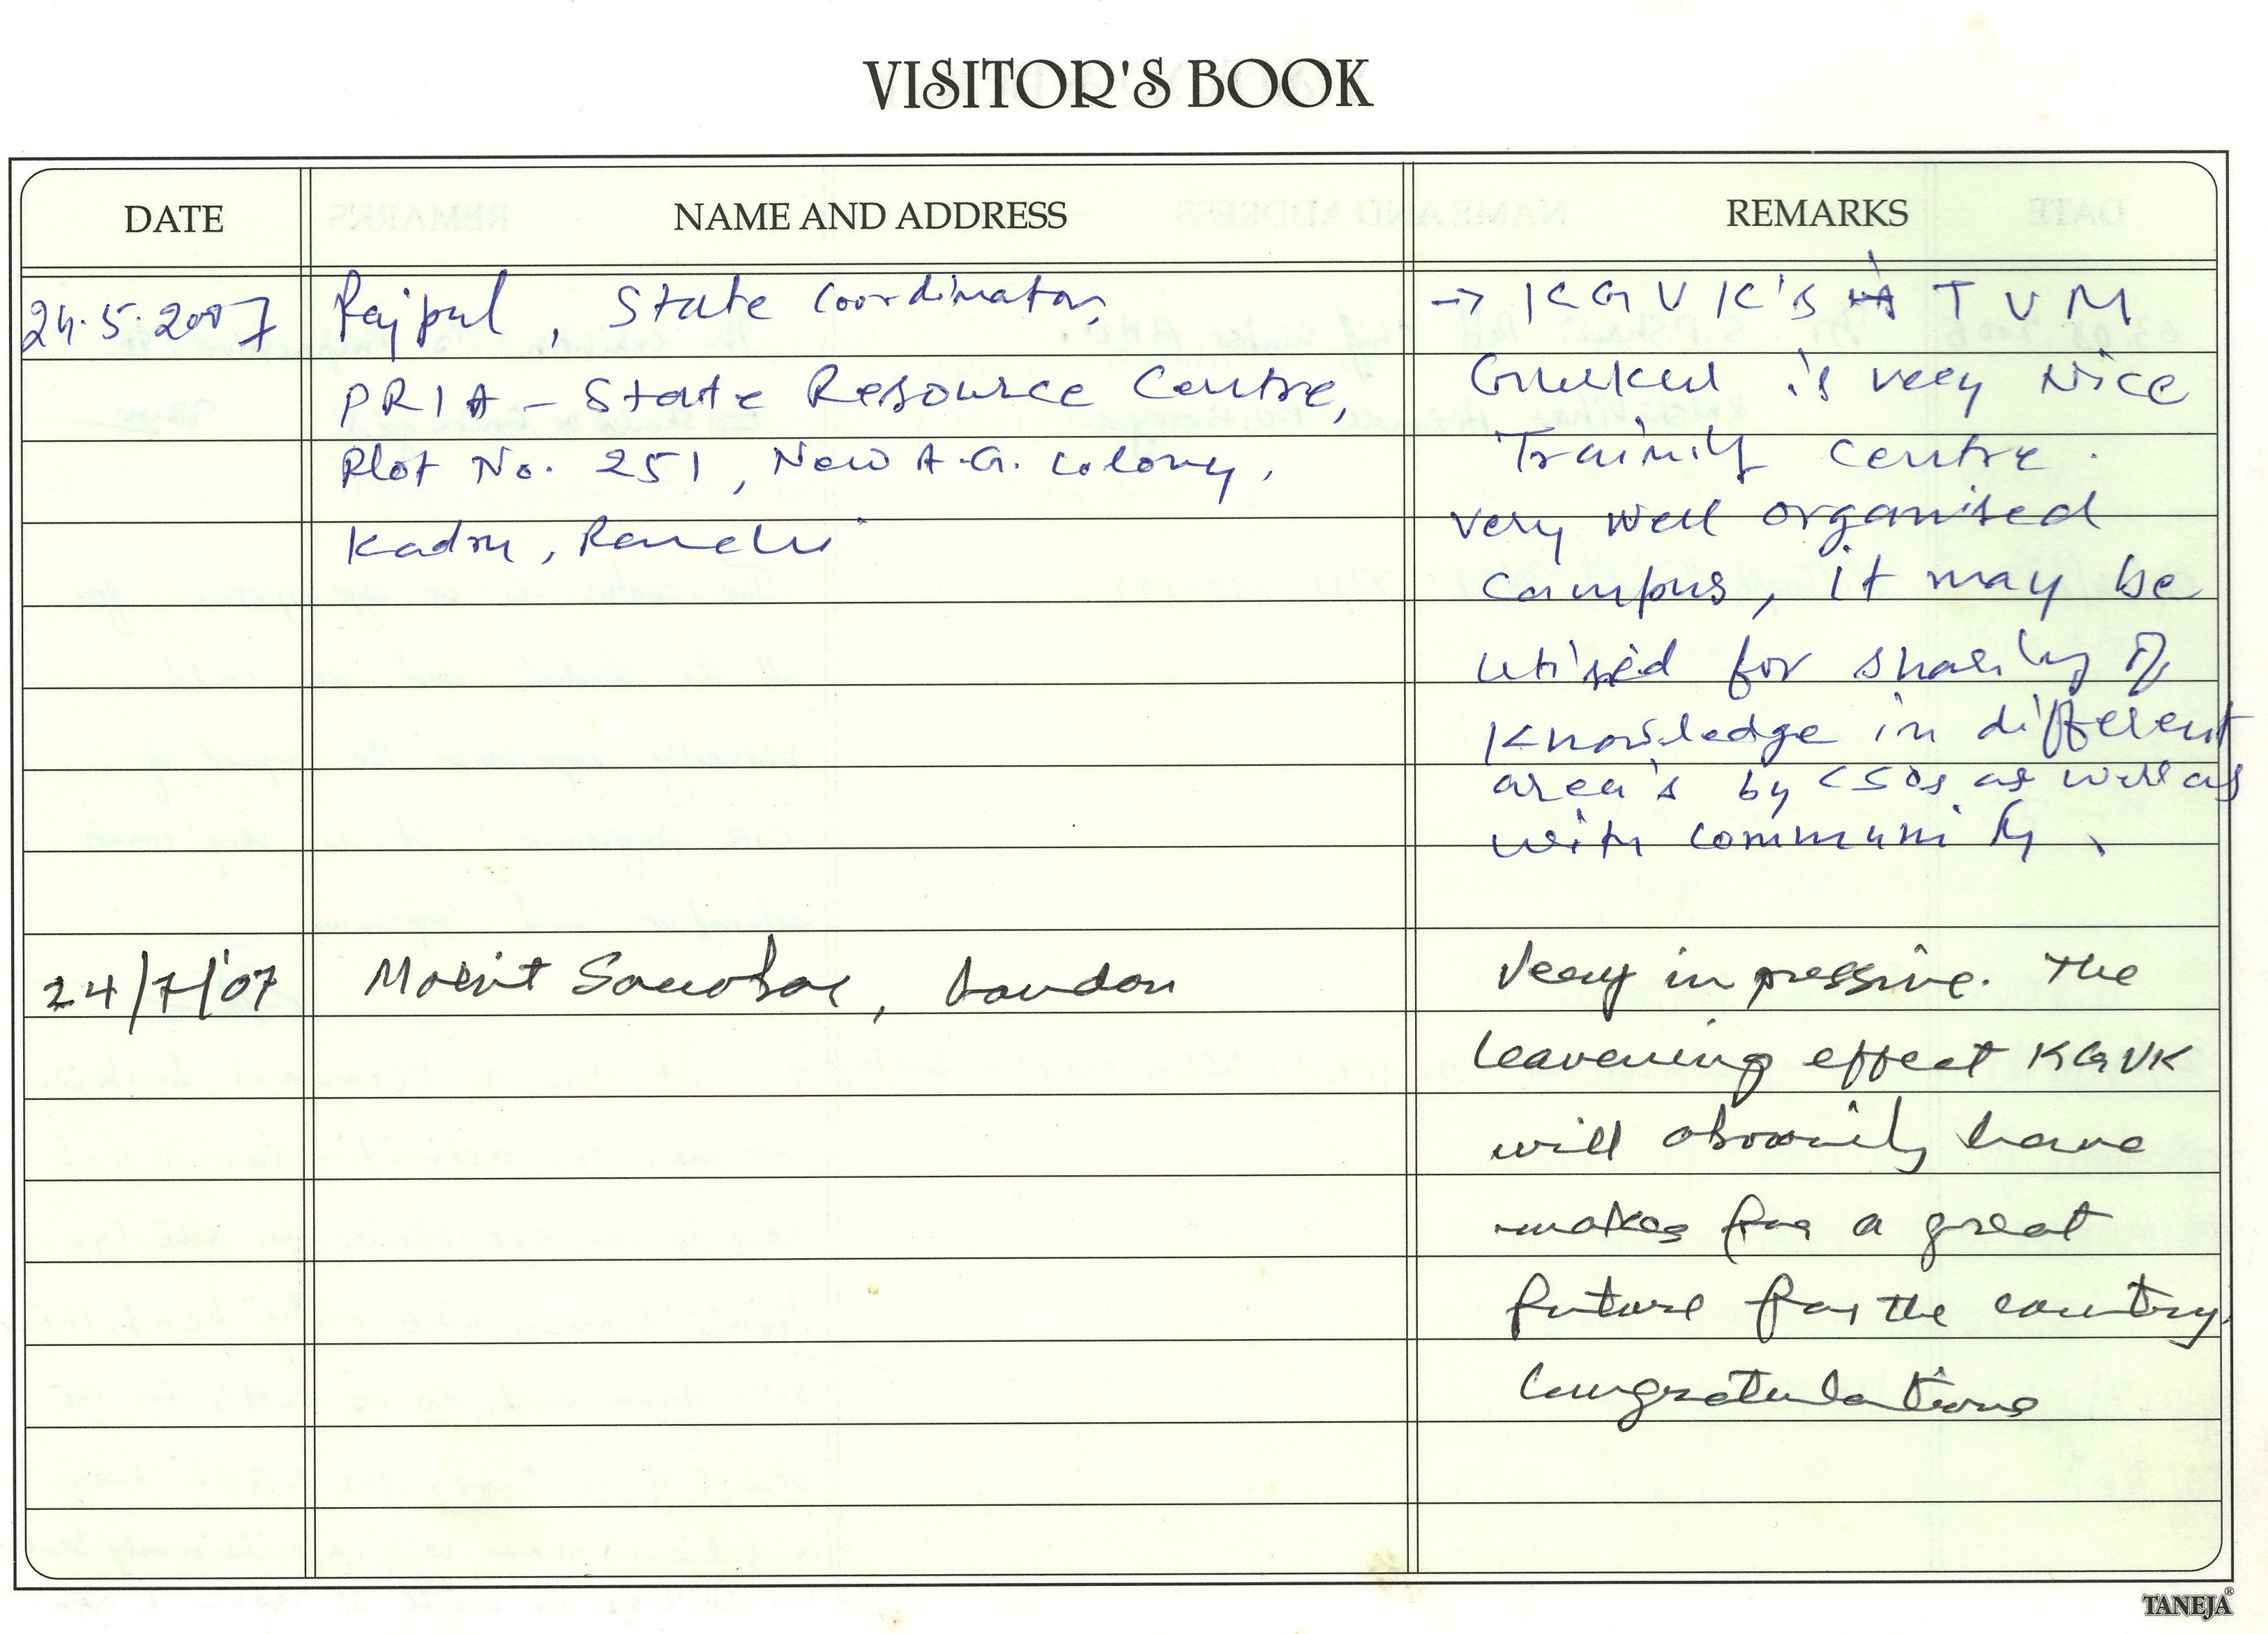 VISITOR'S BOOK
DATE NAME AND ADDRESS REMARKS
24.5.2007 Rajpal, State Coordinator, → KGVK's TVM
PRIA - State Resource Centre, Gurukul is very Nice
Plot No. 251, New A.G. Colony, Training Centre.
Kadru, Ranchi very well organised
campus, it may be
utilised for sharing of
knowledge in different
area's by CSOs as well as
with community.
24/7/'07 Mohit , London Very impressive. The
leavening effect KGVK
will obviously have
makes for a great
future for the country.
Congratulations
TANEJA®